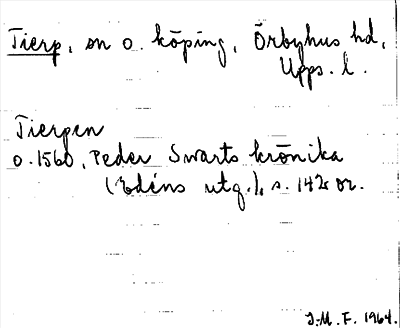 Tierp, sn o. köping, Örbyhus hd,
Upps. l.
Tierpen
o. 1560, Peder Swarts krönika
(Edéns utg.), s. 142 or.
J.M.F. 1964.